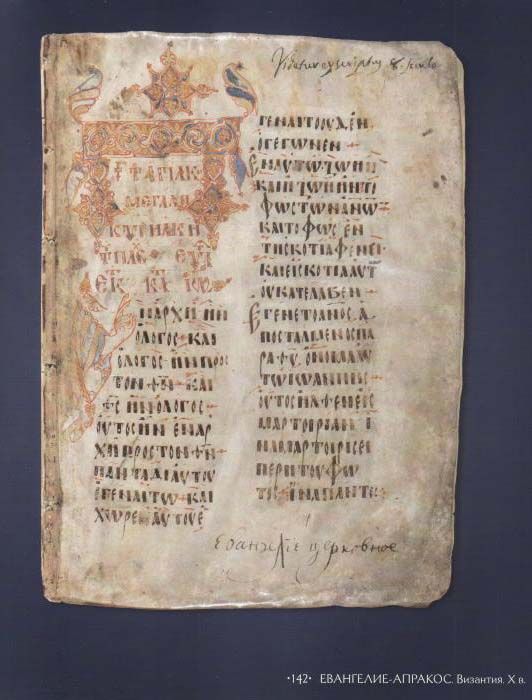 ΤΗ ΑΓΙΑ Κ
ΜΕΓΑΛΗ
ΚΥΡΙΑΚΗ
ΕΚ ΚΑ ΙΩ
ΕΝΑΡΧΗ ΗΝ
ΟΛΟΓΟC· ΚΑΙ
ΟΛΟΓΟC ΗΝ ΠΡΟC
ΤΟΝ ΘΝ· ΚΑΙ
ΘC ΗΝ Ο ΛΟΓΟC·
ΟΥΤΟC ΗΝ ΕΝΑΡ
ΧΗ ΠΡΟC ΤΟΝ ΘΝ·
ΠΑΝΤΑ ΔΙ ΑΥΤΟΥ
ΕΓΕΝΑΙΤΩ· ΚΑΙ
ΧΩΡΕΙC ΑΥΤΟΥ Ε
ΓΕΝΑΙΤΟ ΟΥΔΕΝ
Ο ΓΕΓΩΝΕΝ
ΕΝ ΑΥΤΩ ΖΩΗ ΗΝ
ΚΑΙ Η ΖΩΗ ΗΝ ΤΟ
ΦΩC ΤΩΝ ΑΝΩΝ
ΚΑΙ ΤΟ ΦΩC ΕΝ
ΤΗ CΚΟΤΙΑ ΦΕΝΕΙ
ΚΑΙ Η CΚΟΤΙΑ ΑΥΤ
ΟΥ ΚΑΤΕΛΑΒΕΝ
ΕΓΕΝΕΤΟ ΑΝΟC Α
ΠΟCΤΑΛΜΕΝΟC ΠΑ
ΡΑ ΘΥ· ΟΝΟΜΑ ΑΥ
ΤΩ ΙΩΑΝΝΗC
ΟΥΤΟC ΗΛΘΕΝ ΕΙC
ΜΑΡΤΟΙΡΙΑΝ Ι
ΝΑ ΜΑΡΤΟΙΡΙCΕΙ
ΠΕΡΙ ΤΟΥ ΦΩ
ΤΟC· ΙΝΑ ΠΑΝΤΕC
Евангелïе церковное
•142• ЕВАНГЕЛИЕ-АПРАКОС. Византия. X в.